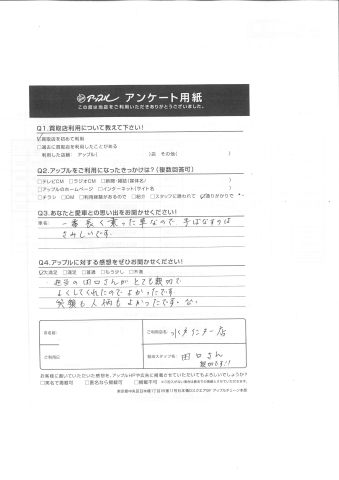 アップル アンケート用紙
この度は当店をご利用いただきありがとうございました。
Q1.買取店利用について教えて下さい!
買取店を初めて利用
□過去に買取店を利用したことがある
利用した店舗: アップル( )店 その他( )
Q2.アップルをご利用になったきっかけは?(複数回答可)
□テレビCM □ラジオCM □新聞・雑誌(媒体名/ )
□アップルのホームページ □インターネット(サイト名 )
□チラシ □DM □利用経験があるので □紹介 □スタッフに誘われて 通りがかりで
Q3.あなたと愛車との思い出をお聞かせください!
車名:
一番長く乗った車なので 手ばなすのは
さみしいです。
Q4.アップルに対する感想をぜひお聞かせください!
大満足 □満足 □普通 □もう少し □不満
担当の田口さんがとても親切で
よくしてくれたので よかったです
笑顔も人柄もよかったです。
お名前:
ご利用店名:
水戸インター店
ご利用日
担当スタッフ名:
田口さん
親切です!!
お客様に書いていただいた感想を、アップルHPや広告に掲載させていただいてもよろしいでしょうか?
□実名で掲載可 □匿名なら掲載可 □掲載不可